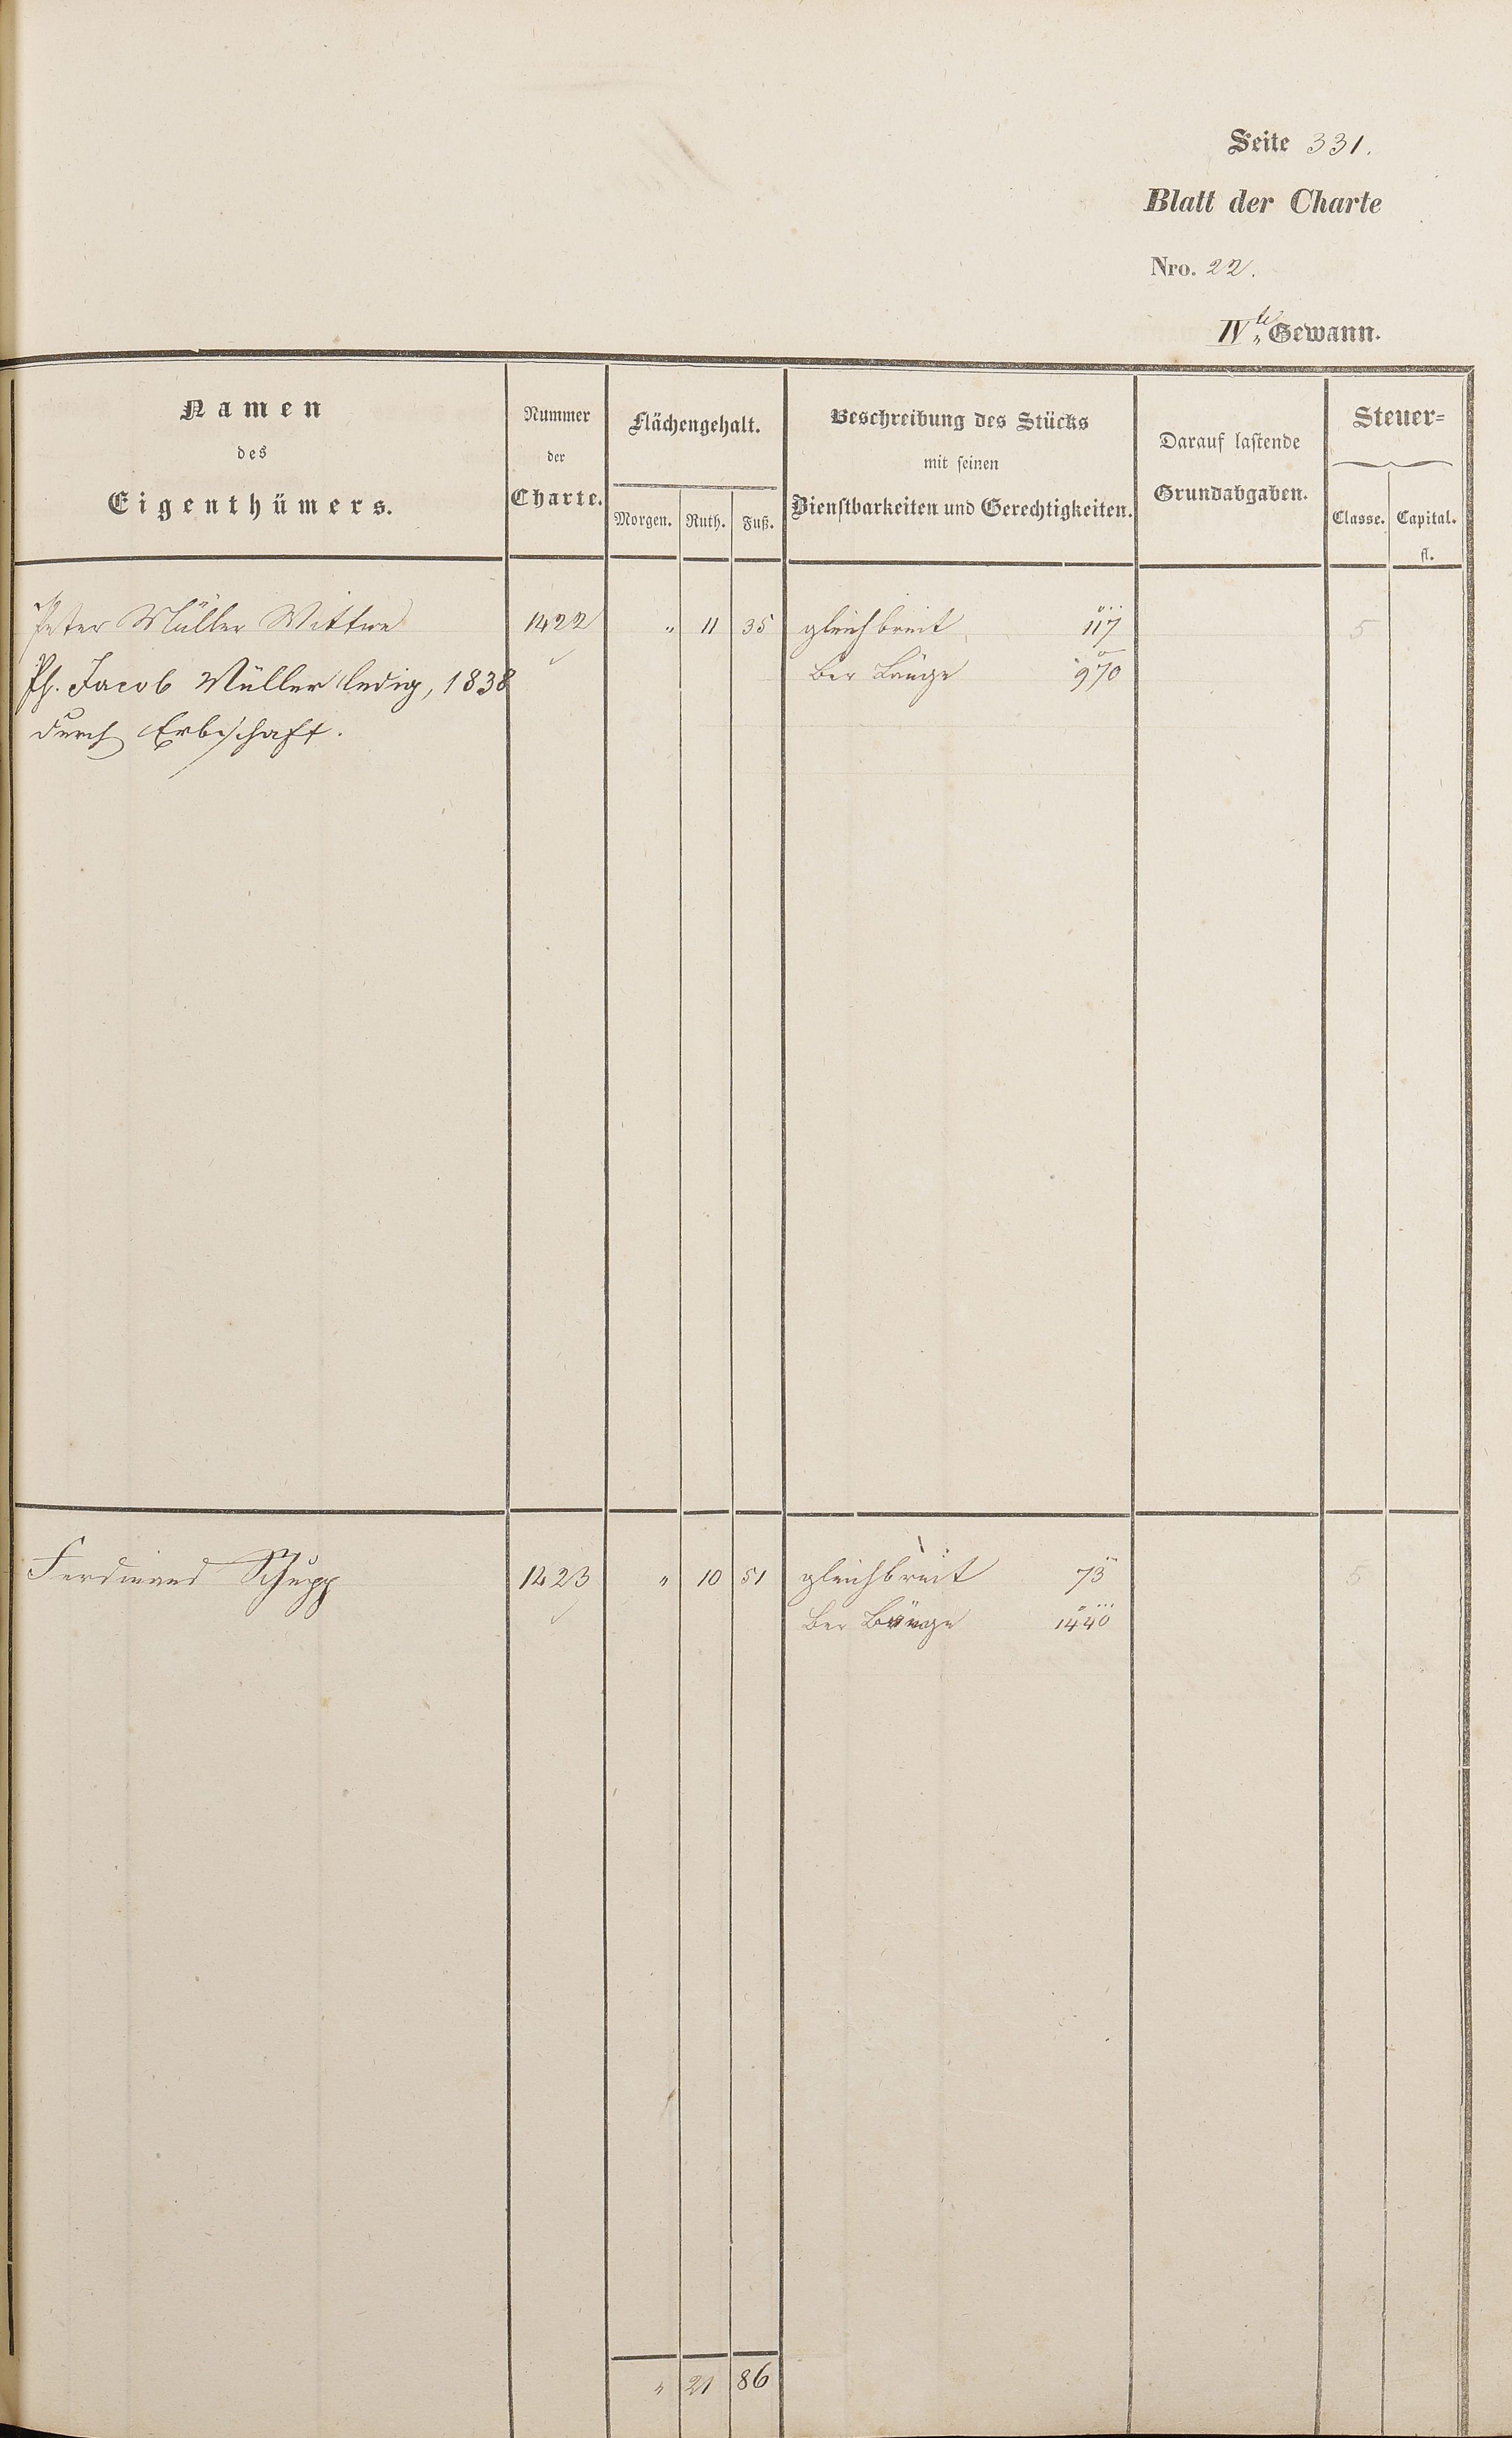 Seite 331.
Blatt der Charte
Nro. 22.
IVte Gewann.
Namen
des
Eigenthümers.
Nummer
der
Charte.
Flächengehalt.
Morgen. Ruth. Fuß.
Beschreibung des Stücks
mit seinen
Dienstbarkeiten und Gerechtigkeiten.
Darauf lastende
Grundabgaben.
Steuer=
Classe. Capital.
fl.
Peter Müller Wittwe 1422 " 11 35 gleichbreit 117 5
Ph. Jacob Müller ledig, 1838 Ber Länge 970
durch Erbschaft.
Ferdinand Schupp 1423 " 10 51 gleichbreit 73 5
Ber Länge 1440
" 21 86